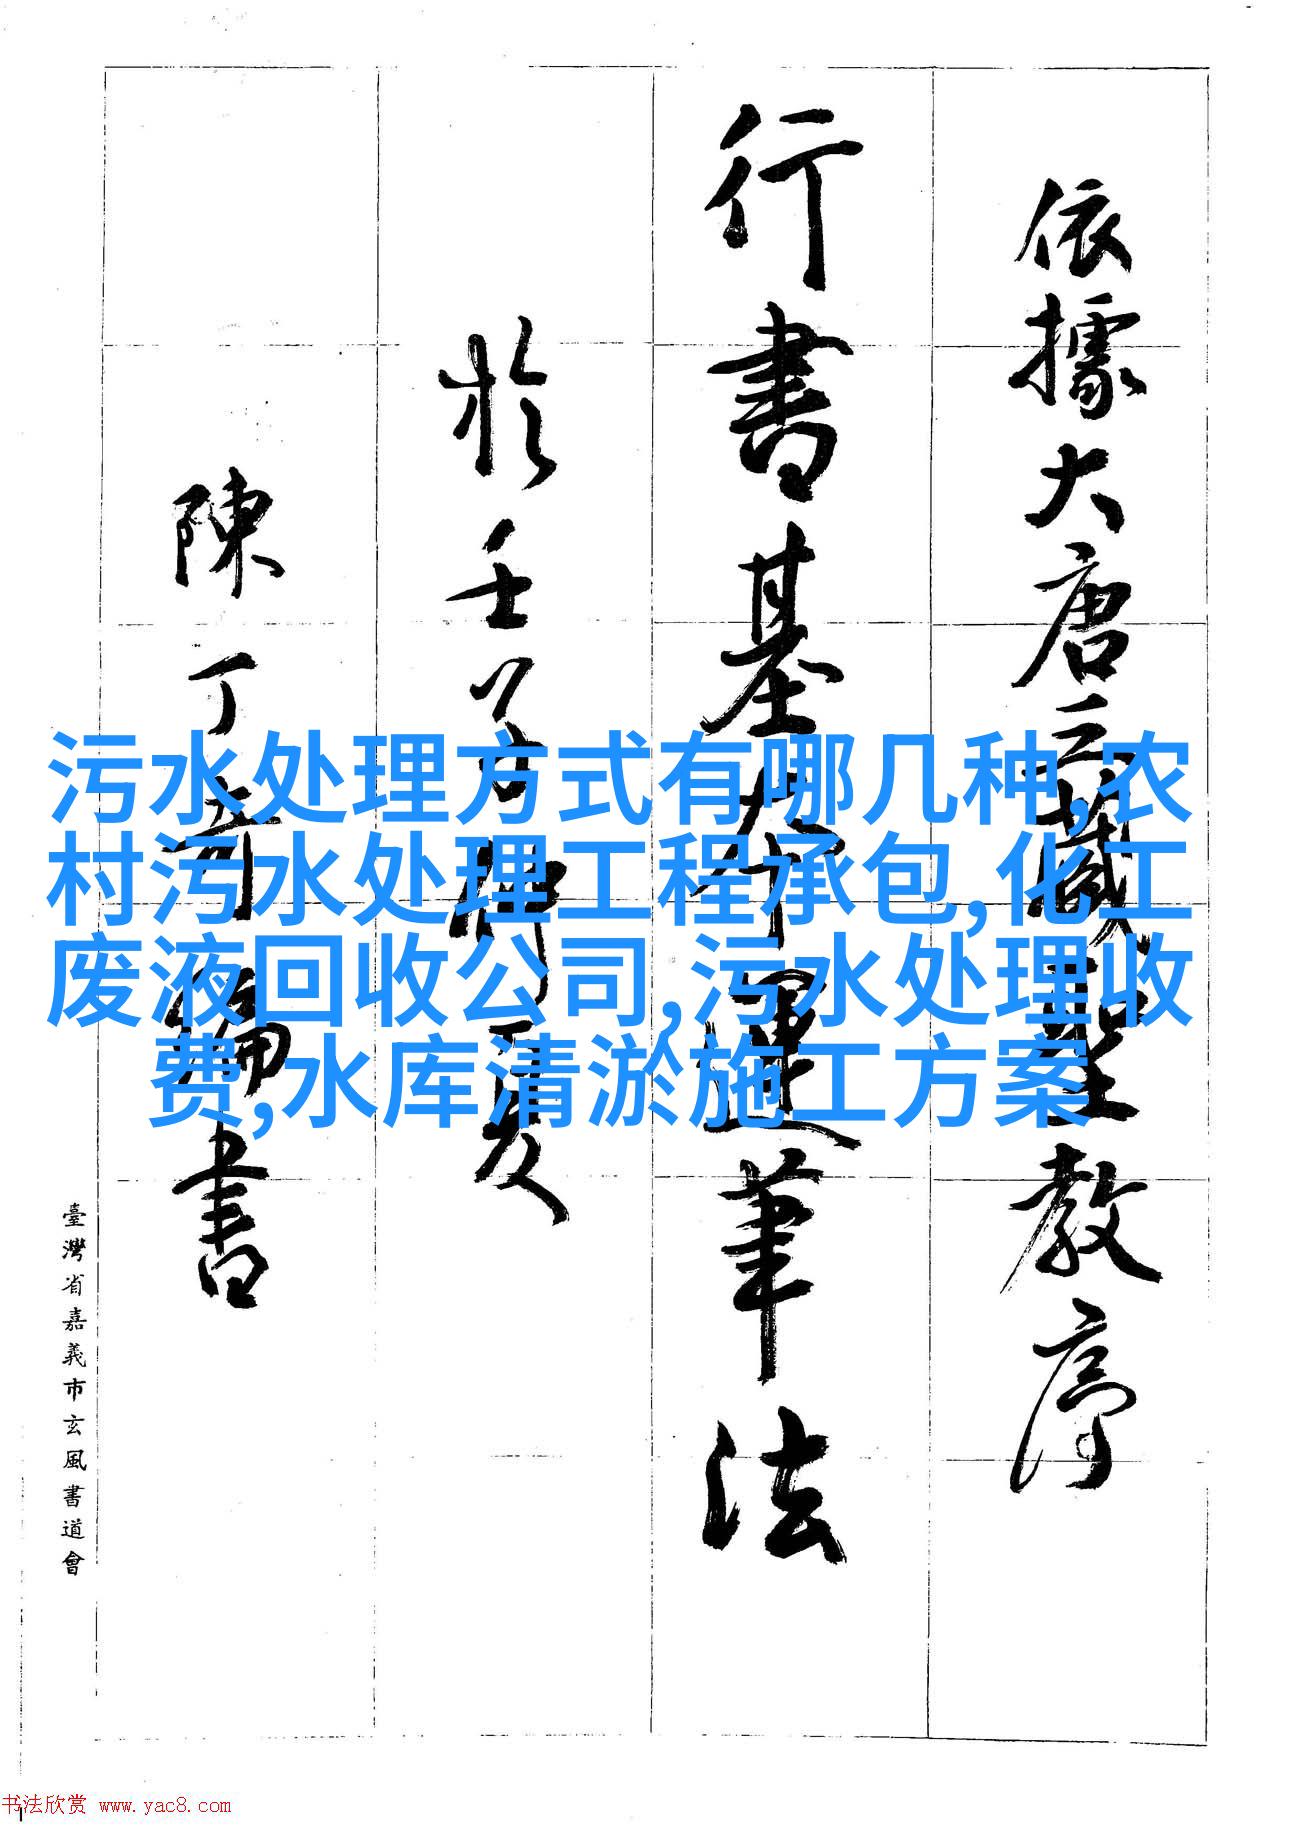 依據大唐三藏聖教序
行書基本運筆法
於壬
夏
陳丁奇編書
臺灣省嘉義市玄風書道會
污水处理方式有哪几种,农
村污水处理工程承包,化工
废液回收公司,污水处理收
费,水库清淤施工方案
书法欣赏 www.yac8.com